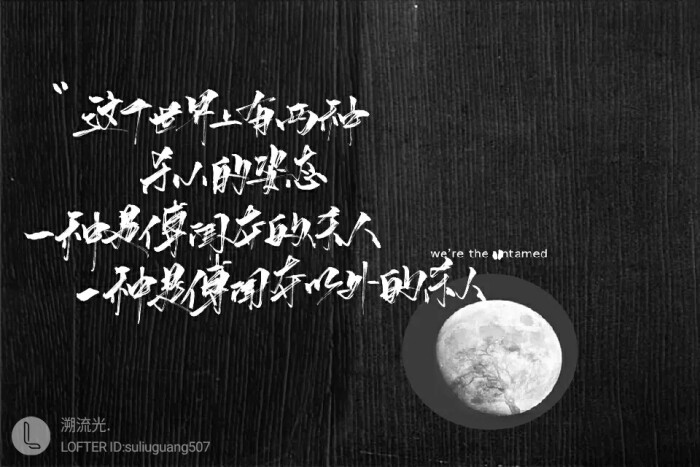 “这个世界上有两种
杀人的姿态
一种是傅闻夺的杀人
we're the untamed
一种是傅闻夺以外的杀人
溯流光.
LOFTER ID:suliuguang507